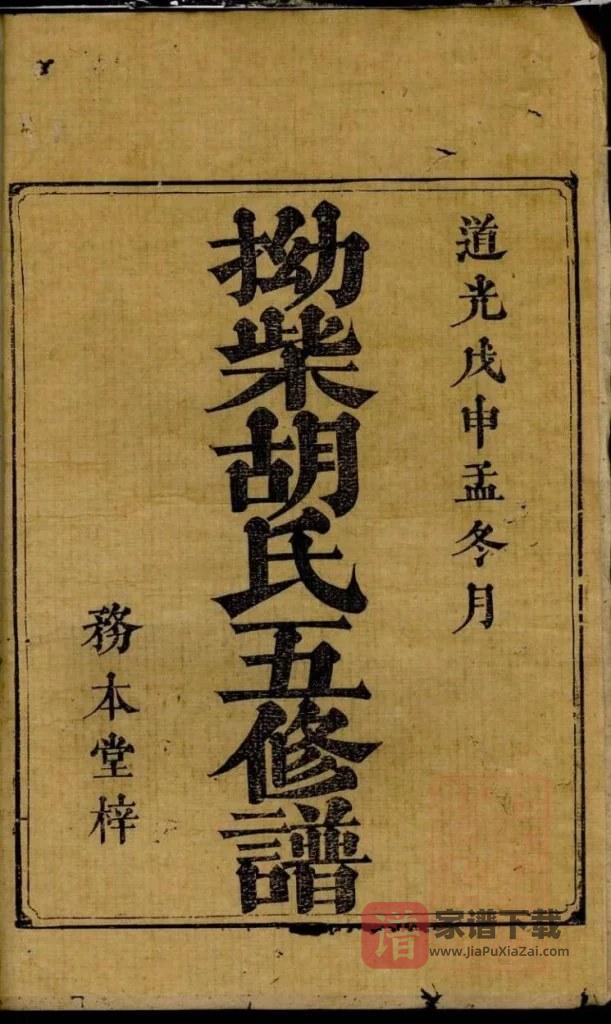 道光戊申孟冬月
拗柴胡氏五修譜
務本堂梓
谱 家谱下载
www.JiaPuXiaZai.com